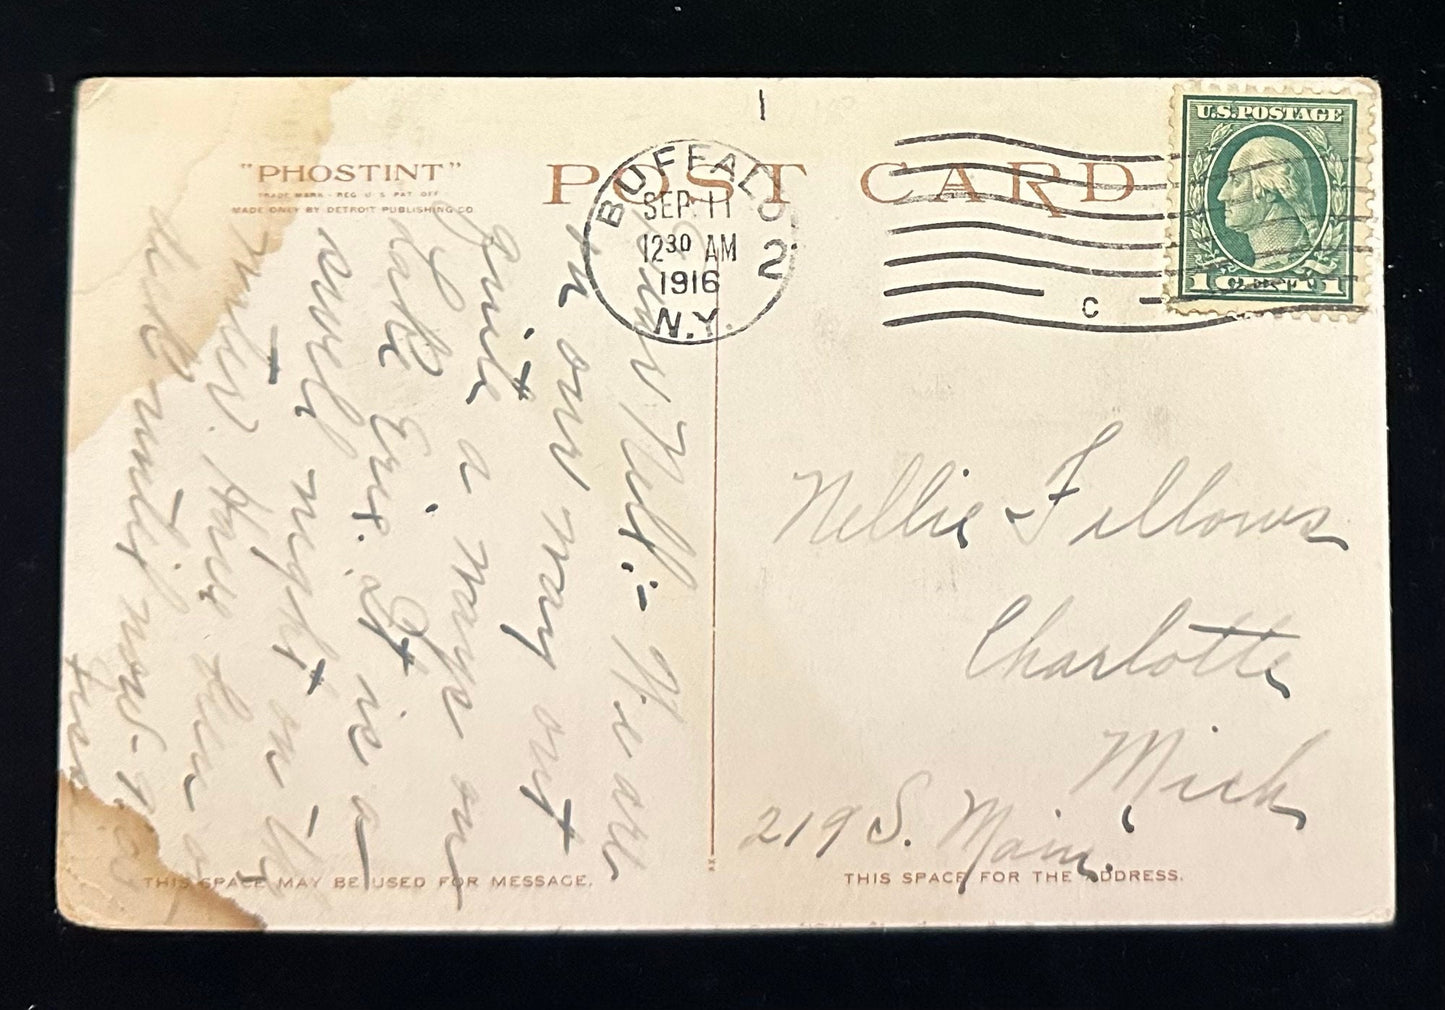 "PHOSTINT"
TRADE MARK - REG. U.S. PAT. OFF.
MADE ONLY BY DETROIT PUBLISHING CO
POST CARD
BUFFALO,
SEP. 11
12 30 AM
1916
N.Y.
2
C
U.S. POSTAGE
1 CENT 1
Dear Nell:- We are
on our way out
quite a ways on
Lake Erie. It is a
swell night on the
water. Have been a
sick until now.
Nellie Fellows
Charlotte
Mich
219 S. Main.
THIS SPACE MAY BE USED FOR MESSAGE.
THIS SPACE FOR THE ADDRESS.